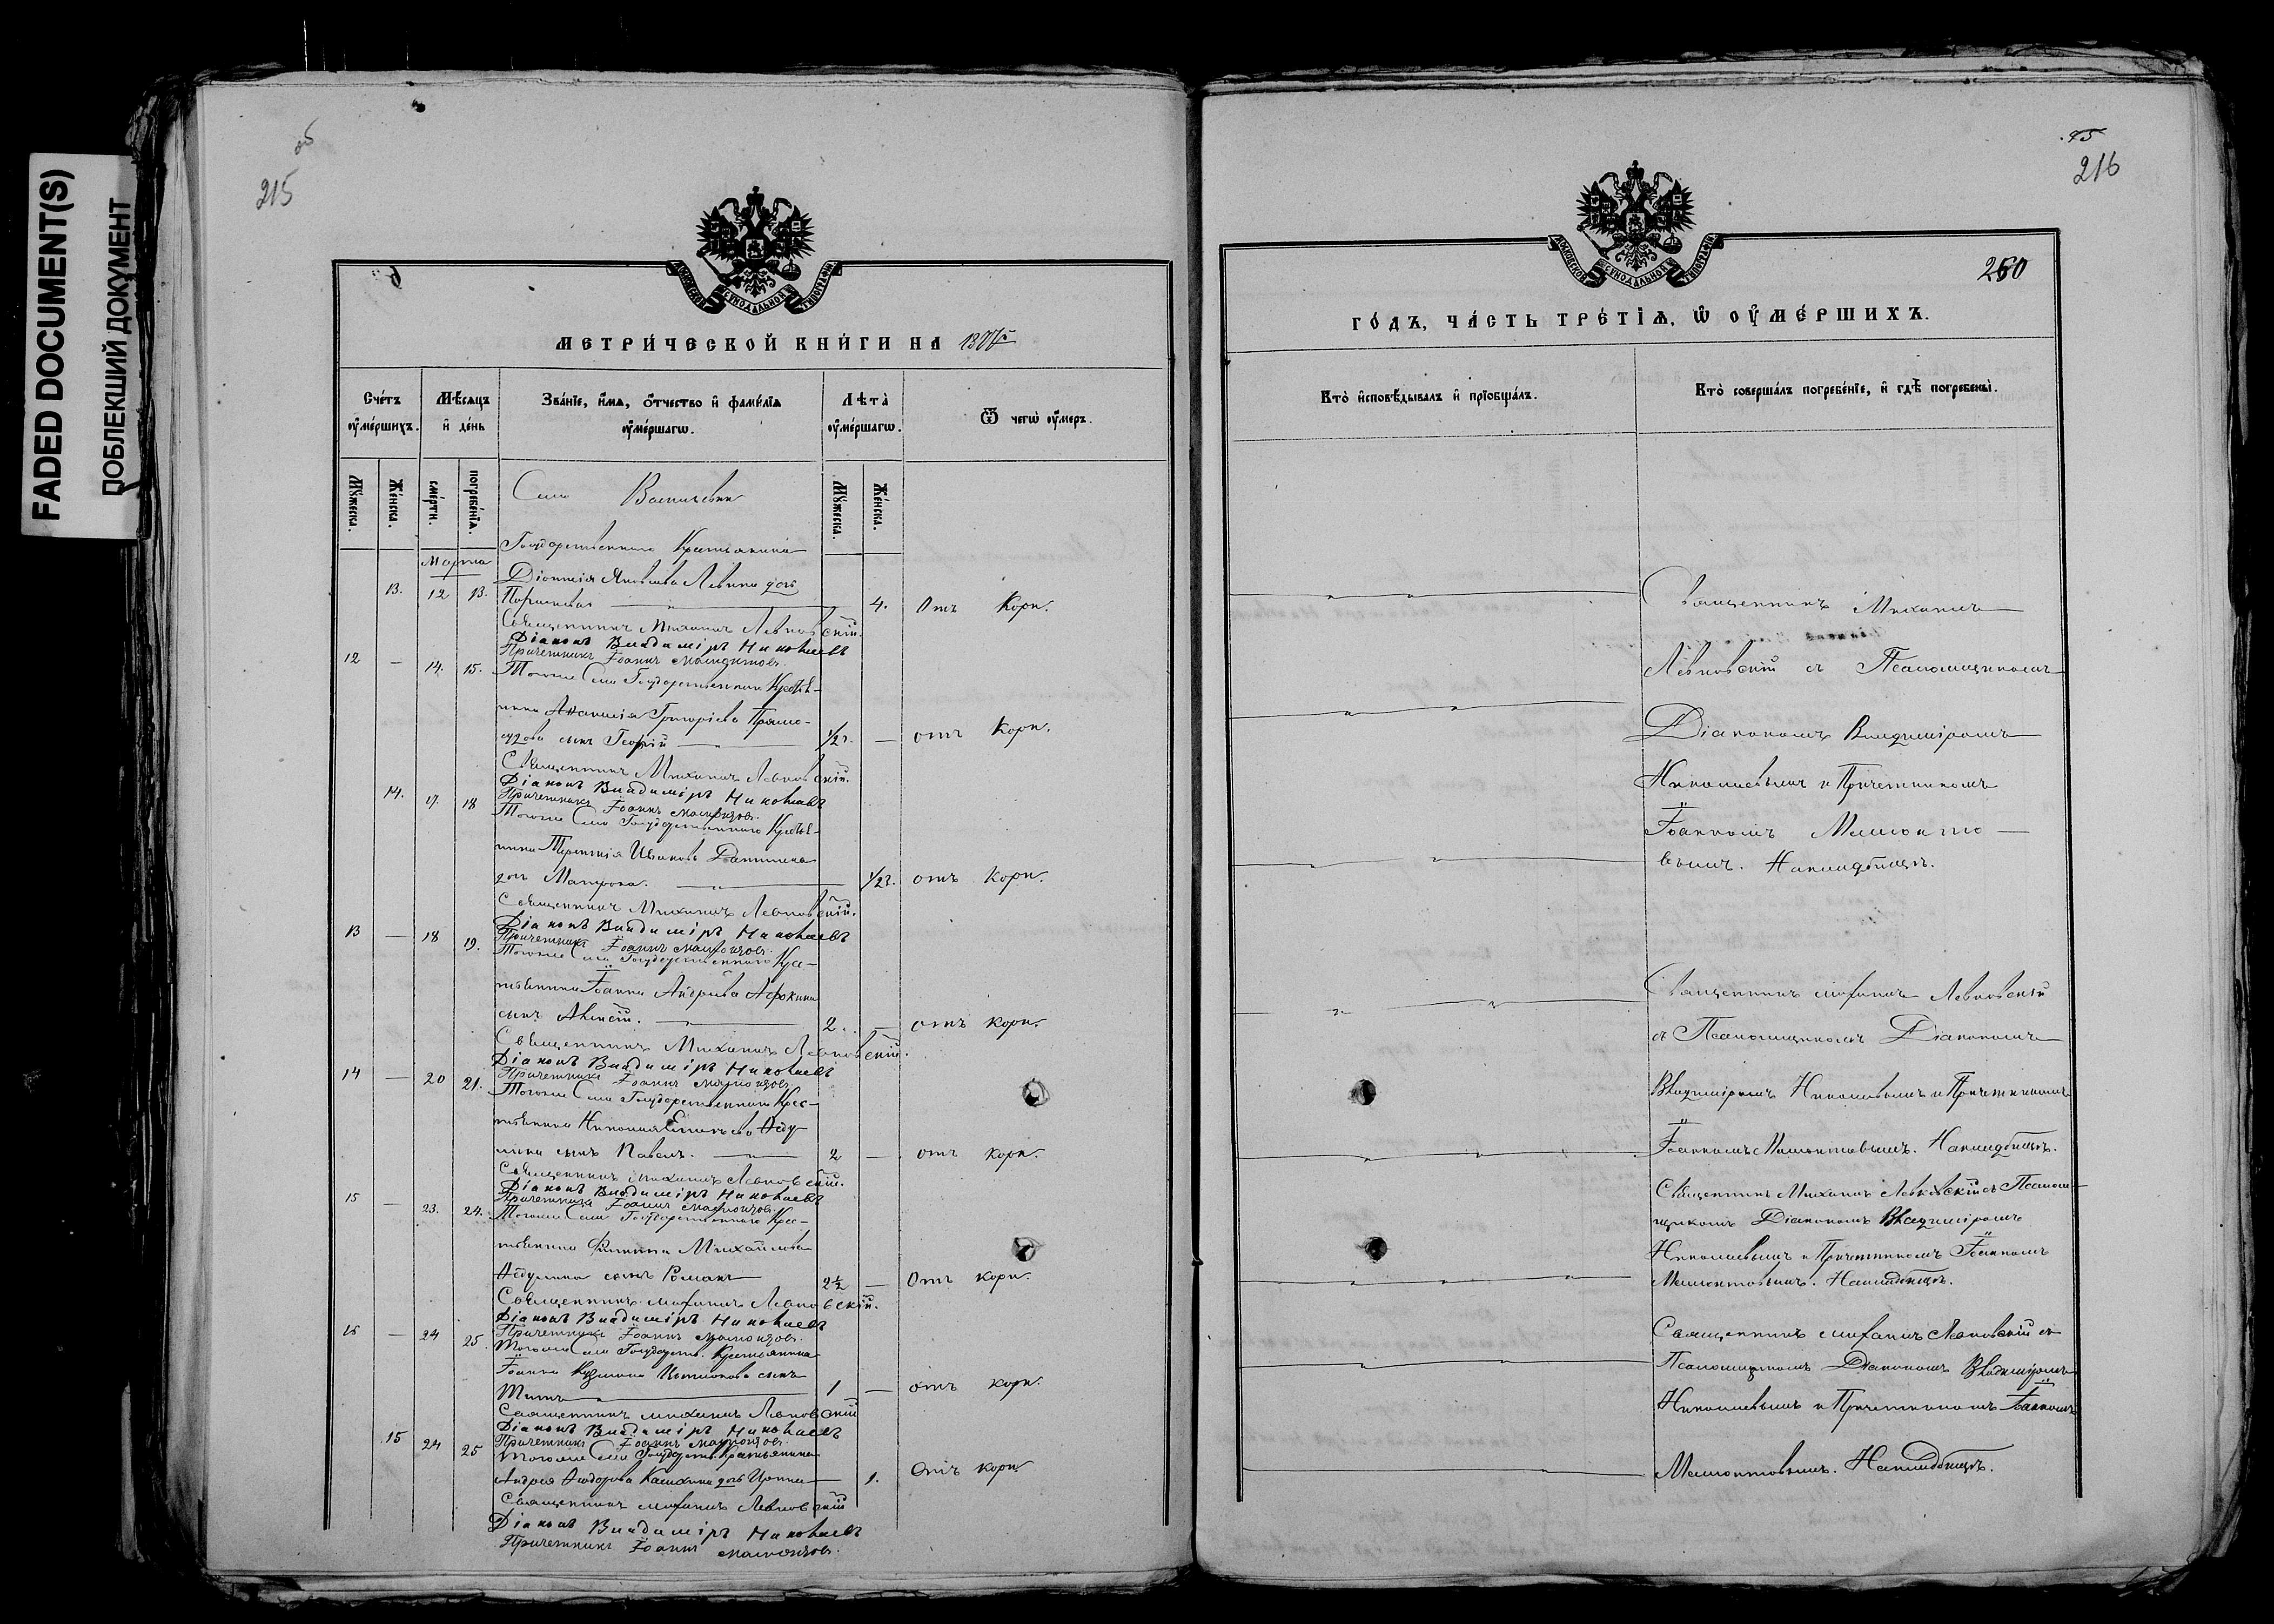 FADED DOCUMENT(S)
ПОБЛЕКШИЙ ДОКУМЕНТ
215
МОСКОВСКОЙ СѴНОДАЛЬНОЙ ТИПОГРАФІИ
МЕТРИ́ЧЕСКОЙ КНИ́ГИ НА
Сче́тъ оу҆ме́ршихъ.
Мѣ́сяцъ и҆ де́нь
Зва́нїе, и҆́мѧ, ѻ҆́тчество и҆ фами́лїѧ оу҆ме́ршагѡ.
Лѣта̀ оу҆ме́ршагѡ.
Ѿ чегѡ̀ оу҆́меръ.
Мꙋ́жеска.
Же́нска.
сме́рти.
погребе́нїѧ.
Мꙋ́жеска.
Же́нска.
Село
Государственнаго Крестьянина
Марта
Діонисія Яковлева Левина дочь
13. 12 13. 4. Отъ Кори.
Священникъ Михаилъ Левковскій.
Діаконъ Владиміръ Николаевъ
Причетникъ Іоаннъ Мамонтовъ.
12 — 14. 15. Тогоже Села Государственнаго Крестья-
нина Аѳанасія Григоріева
сынъ Георгій 1/2 г. — отъ Кори.
Священникъ Михаилъ Левковскій.
Діаконъ Владиміръ Николаевъ
Причетникъ Іоаннъ Мамонтовъ.
14. 17. 18 Тогоже Села Государственнаго Крестья-
нина Терентія Иванова
дочь Матрона. 1/2 г. отъ Кори.
Священникъ Михаилъ Левковскій.
Діаконъ Владиміръ Николаевъ
Причетникъ Іоаннъ Мамонтовъ.
13 — 18 19. Тогоже Села Государственнаго Кре-
стьянина Іоанна Андреева Афокина
сынъ Алексій. 2. — отъ Кори.
Священникъ Михаилъ Левковскій.
Діаконъ Владиміръ Николаевъ
Причетникъ Іоаннъ Мамонтовъ.
14 — 20 21. Тогоже Села Государственнаго Крес-
тьянина Николая
сынъ Павелъ. 2 — отъ кори.
Священникъ Михаилъ Левковскій.
Діаконъ Владиміръ Николаевъ
Причетникъ Іоаннъ Мамонтовъ.
15 — 23. 24. Тогоже Села Государственнаго Крес-
тьянина Филиппа Михайлова
сынъ Романъ 2 1/2 — Отъ кори.
Священникъ Михаилъ Левковскій.
Діаконъ Владиміръ Николаевъ
Причетникъ Іоаннъ Мамонтовъ.
16 — 24 25. Тогоже Села Государств. Крестьянина
Іоанна Кузмина сынъ
1 — отъ кори.
Священникъ Михаилъ Левковскій
Діаконъ Владиміръ Николаевъ
Причетникъ Іоаннъ Мамонтовъ.
15 24 25 Тогоже Села Государств. Крестьянина
Андрея Ѳеодорова дочь 1. Отъ кори.
Священникъ Михаилъ Левковскій
Діаконъ Владиміръ Николаевъ
Причетникъ Іоаннъ Мамонтовъ.
216
МОСКОВСКОЙ СѴНОДАЛЬНОЙ ТИПОГРАФІИ
260
ГО́ДЪ, ЧА́СТЬ ТРЕ́ТЇѦ, Ѡ҆ ОУ҆МЕ́РШИХЪ.
Кто̀ и҆сповѣ́дывалъ и҆ прїобща́лъ.
Кто̀ соверша́лъ погребе́нїе, и҆ гдѣ̀ погребены̀.
Священникъ Михаилъ
Левковскій съ Псаломщикомъ
Діакономъ Владиміромъ
Николаевымъ и Причетникомъ
Іоанномъ Мамонто —
вымъ. На кладбищѣ.
Священникъ Михаилъ Левковскій
съ Псаломщикомъ Діакономъ
Владиміромъ Николаевымъ и Причетникомъ
Іоанномъ Мамонтовымъ. На кладбищѣ.
Священникъ Михаилъ Левковскій съ Псалом-
щикомъ Діакономъ Владиміромъ
Николаевымъ и Причетникомъ Іоанномъ
Мамонтовымъ. На кладбищѣ.
Священникъ Михаилъ Левковскій съ
Псаломщикомъ Діакономъ Владиміромъ
Николаевымъ и Причетникомъ Іоанномъ
Мамонтовымъ. На кладбищѣ.